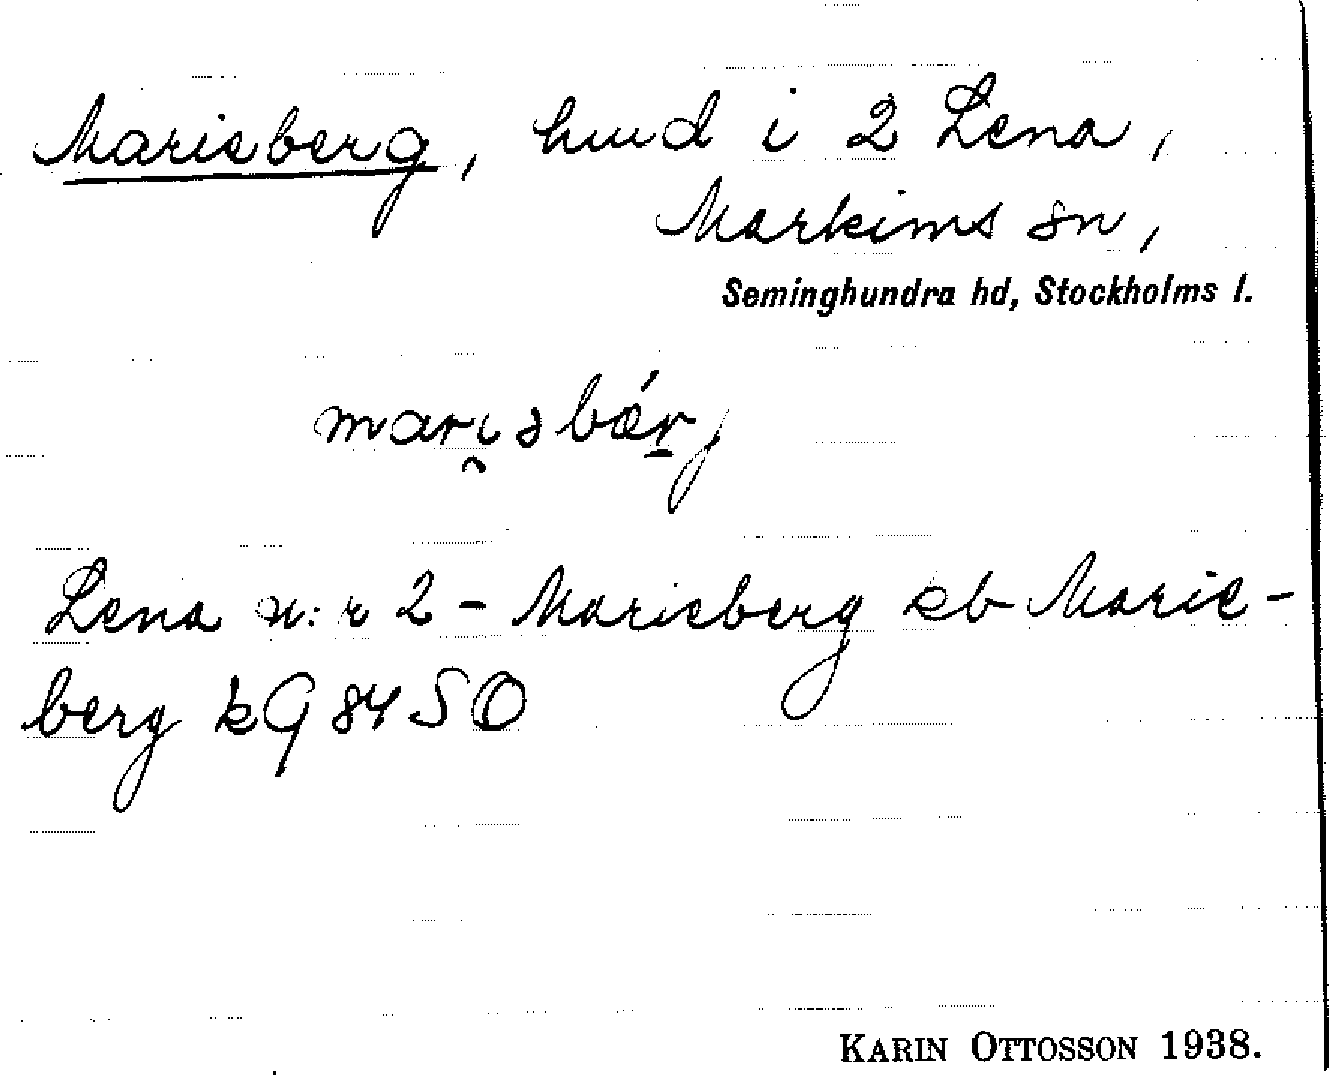 Marieberg, hmd i 2 Lena,
Markims sn,
Seminghundra hd, Stockholms l.
marisbǽrj
Lena n:r 2 - Marieberg eb Marie-
berg kG 84 SO
KARIN OTTOSSON 1938.